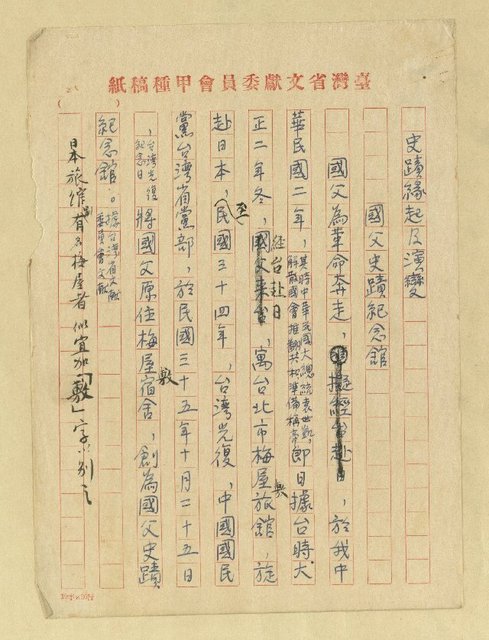 臺灣省文獻委員會甲種稿紙
史蹟緣起及演變
國父史蹟紀念館
國父為革命奔走，於我中
華民國二年，其時中華民國大總統袁世凱，解散國會推翻共和準備稱帝即日據台時大
正二年冬，經台赴日寓台北市梅屋敷旅館，旋
赴日本，至(民國三十四年，台灣光復，中國國民
黨台灣省黨部，於民國三十五年十月二十五日
，台灣光復紀念日將國父原住梅屋敷宿舍，創為國父史蹟
紀念館。據台灣省文獻委員會文獻
日本旅館有名梅屋者似宜加「敷」字以別之